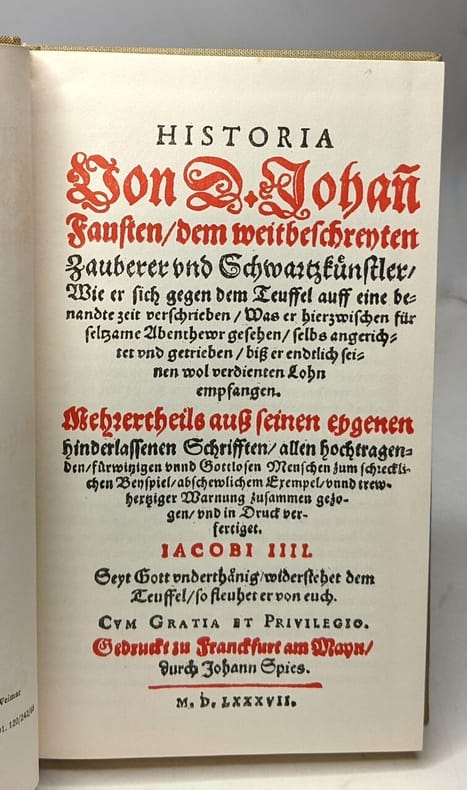 HISTORIA
Von D. Johañ
Fausten/dem weitbeschreyten
Zauberer vnd Schwartzkünstler/
Wie er sich gegen dem Teuffel auff eine be-
nandte zeit verschrieben/Was er hierzwischen für
seltzame Abenthewr gesehen/selbs angerich-
tet vnd getrieben/biß er endtlich sei-
nen wol verdienten Lohn
empfangen.
Mehrertheils auß seinen eygenen
hinderlassenen Schrifften/allen hochtragen-
den/fürwitzigen vnnd Gottlosen Menschen zum schreckli-
chen Beyspiel/abschewlichem Exempel/vnnd trew-
hertziger Warnung zusammen gezo-
gen/vnd in Druck ver-
fertiget.
IACOBI IIII.
Seyt Gott vnderthänig/widerstehet dem
Teuffel/so fleuhet er von euch.
CVM GRATIA ET PRIVILEGIO.
Gedruckt zu Franckfurt am Mayn/
durch Johann Spies.
M. D. LXXXVII.
Weimar
120/242/66